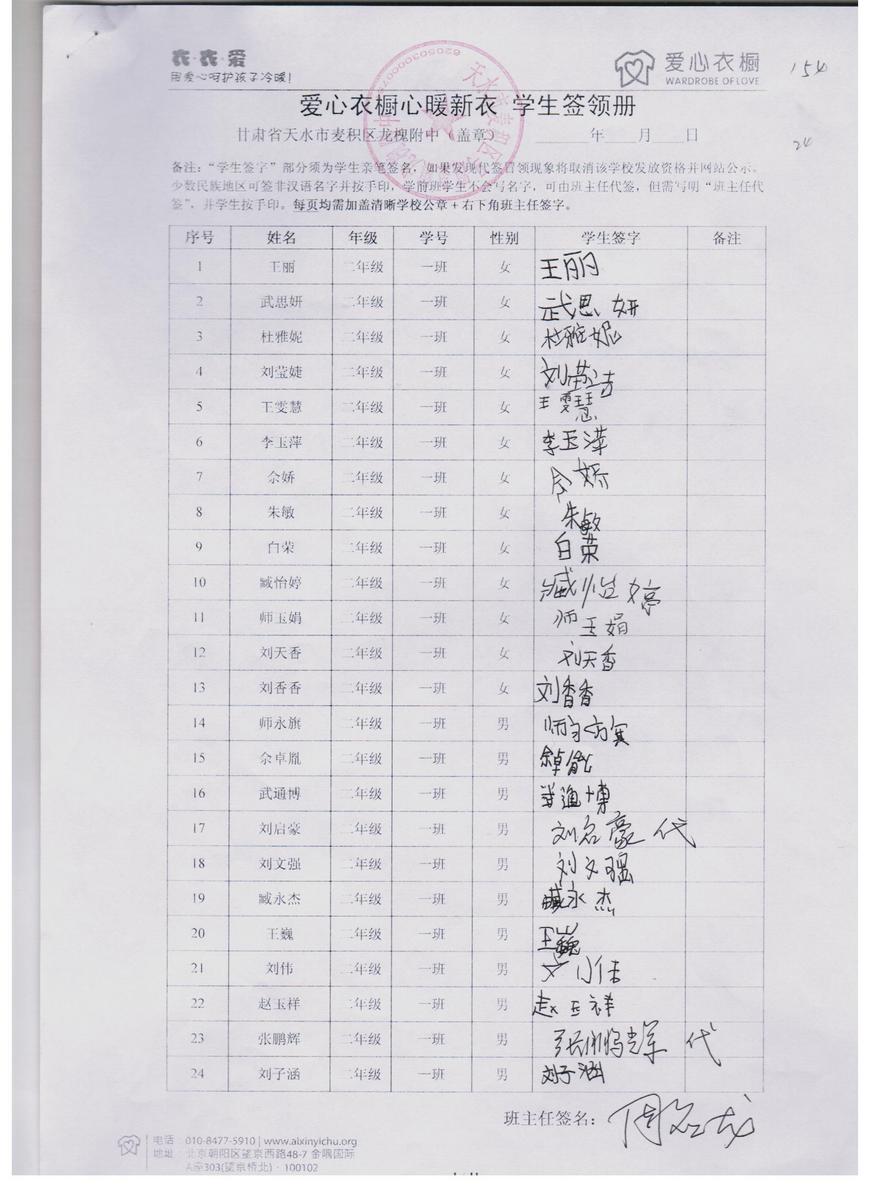 衣·衣·爱
用爱心呵护孩子冷暖!
爱心衣橱
WARDROBE OF LOVE
154
爱心衣橱心暖新衣 学生签领册
甘肃省天水市麦积区龙槐附中（盖章） ______年____月____日
24
备注：“学生签字”部分须为学生亲笔签名，如果发现代签冒领现象将取消该学校发放资格并网站公示。
少数民族地区可签非汉语名字并按手印，学前班学生不会写名字，可由班主任代签，但需写明“班主任代
签”，并学生按手印。每页均需加盖清晰学校公章+右下角班主任签字。
序号 姓名 年级 学号 性别 学生签字 备注
1 王丽 二年级 一班 女 王丽
2 武思妍 二年级 一班 女 武思妍
3 杜雅妮 二年级 一班 女 杜雅妮
4 刘莹婕 二年级 一班 女 刘莹
5 王雯慧 二年级 一班 女 王雯慧
6 李玉萍 二年级 一班 女 李玉萍
7 佘娇 二年级 一班 女 娇
8 朱敏 二年级 一班 女 朱敏
9 白荣 二年级 一班 女 白荣
10 臧怡婷 二年级 一班 女 臧怡婷
11 师玉娟 二年级 一班 女 师玉娟
12 刘天香 二年级 一班 女 刘天香
13 刘香香 二年级 一班 女 刘香香
14 师永旗 二年级 一班 男 师
15 佘卓胤 二年级 一班 男
16 武通博 二年级 一班 男 通博
17 刘启豪 二年级 一班 男 刘启豪 代
18 刘文强 二年级 一班 男 刘文强
19 臧永杰 二年级 一班 男 臧永杰
20 王巍 二年级 一班 男 王巍
21 刘伟 二年级 一班 男
22 赵玉祥 二年级 一班 男 赵玉祥
23 张鹏辉 二年级 一班 男 张鹏辉 代
24 刘子涵 二年级 一班 男 刘子涵
班主任签名：
电话：010-8477-5910 | www.aixinyichu.org
地址：北京朝阳区望京西路48-7 金隅国际
A座303(望京桥北)·100102